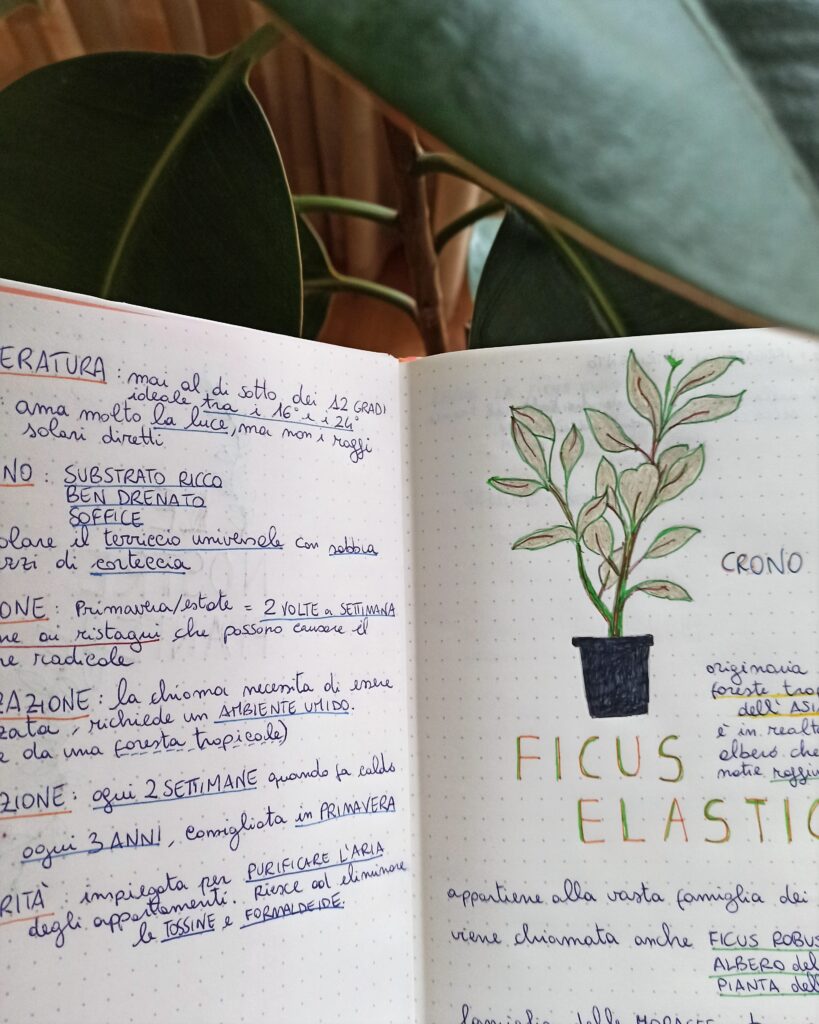 ERATURA : mai al di sotto dei 12 GRADI
ideale tra i 16° e i 24°
: ama molto la luce, ma non i raggi
solari diretti
NO : SUBSTRATO RICCO
BEN DRENATO
SOFFICE
olare il terriccio universale con sabbia
rzi di corteccia
ONE : Primavera/estate = 2 VOLTE a SETTIMANA
ne ai ristagni che possono causare il
e radicale
RAZIONE : la chioma necessita di essere
zzata, richiede un AMBIENTE UMIDO.
e da una foresta tropicale)
ZIONE : ogni 2 SETTIMANE quando fa caldo
ogni 3 ANNI, consigliata in PRIMAVERA
RITÀ : impiegata per PURIFICARE L'ARIA
degli appartamenti. Riesce ad eliminare
le TOSSINE e FORMALDEIDE.
CRONO
originaria
foreste trop
dell'ASI
è in realt
albero che
notie raggiu
FICUS
ELASTIC
appartiene alla vasta famiglia dei
viene chiamata anche FICUS ROBUS
ALBERO del
PIANTA dell
famiglia delle MORACEE